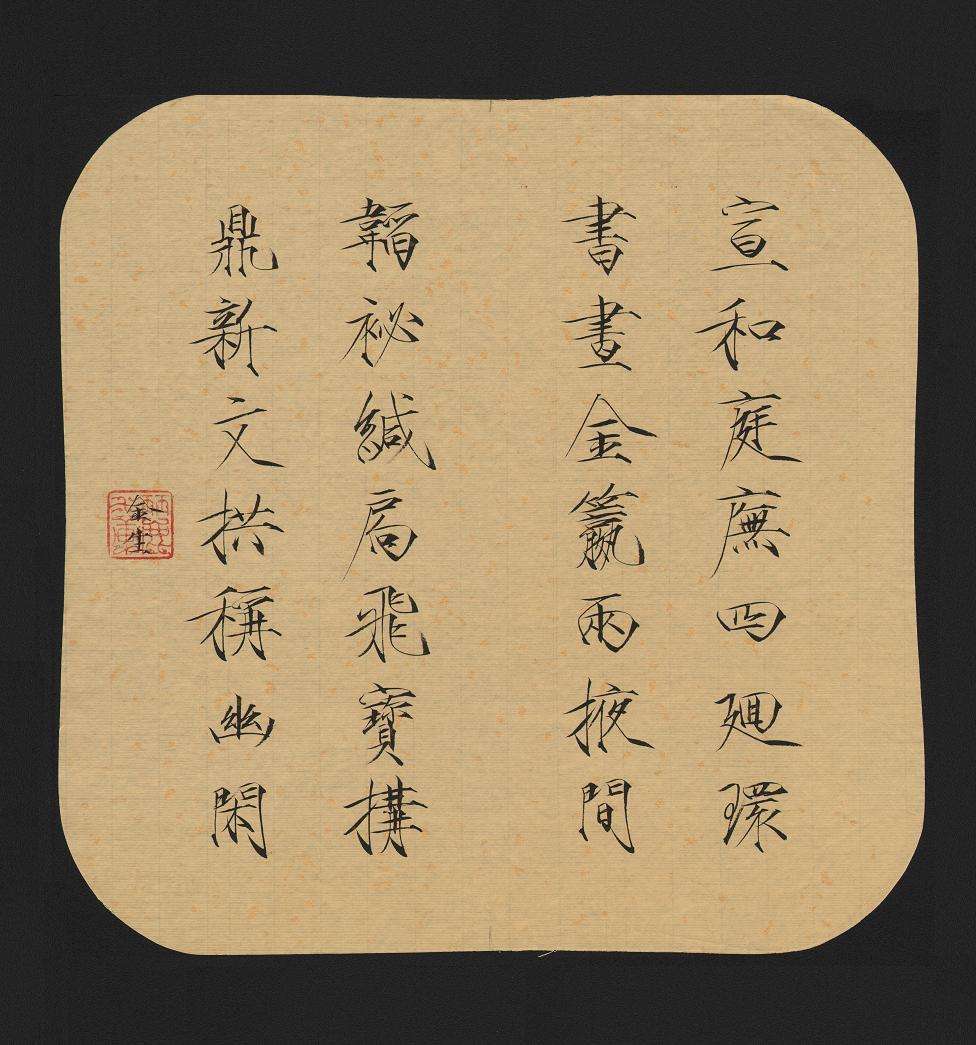 宣和庭廡四廻環
書畫金籝兩掖間
韜袐緘扄飛寶構
鼎新文拱稱幽閑
金生